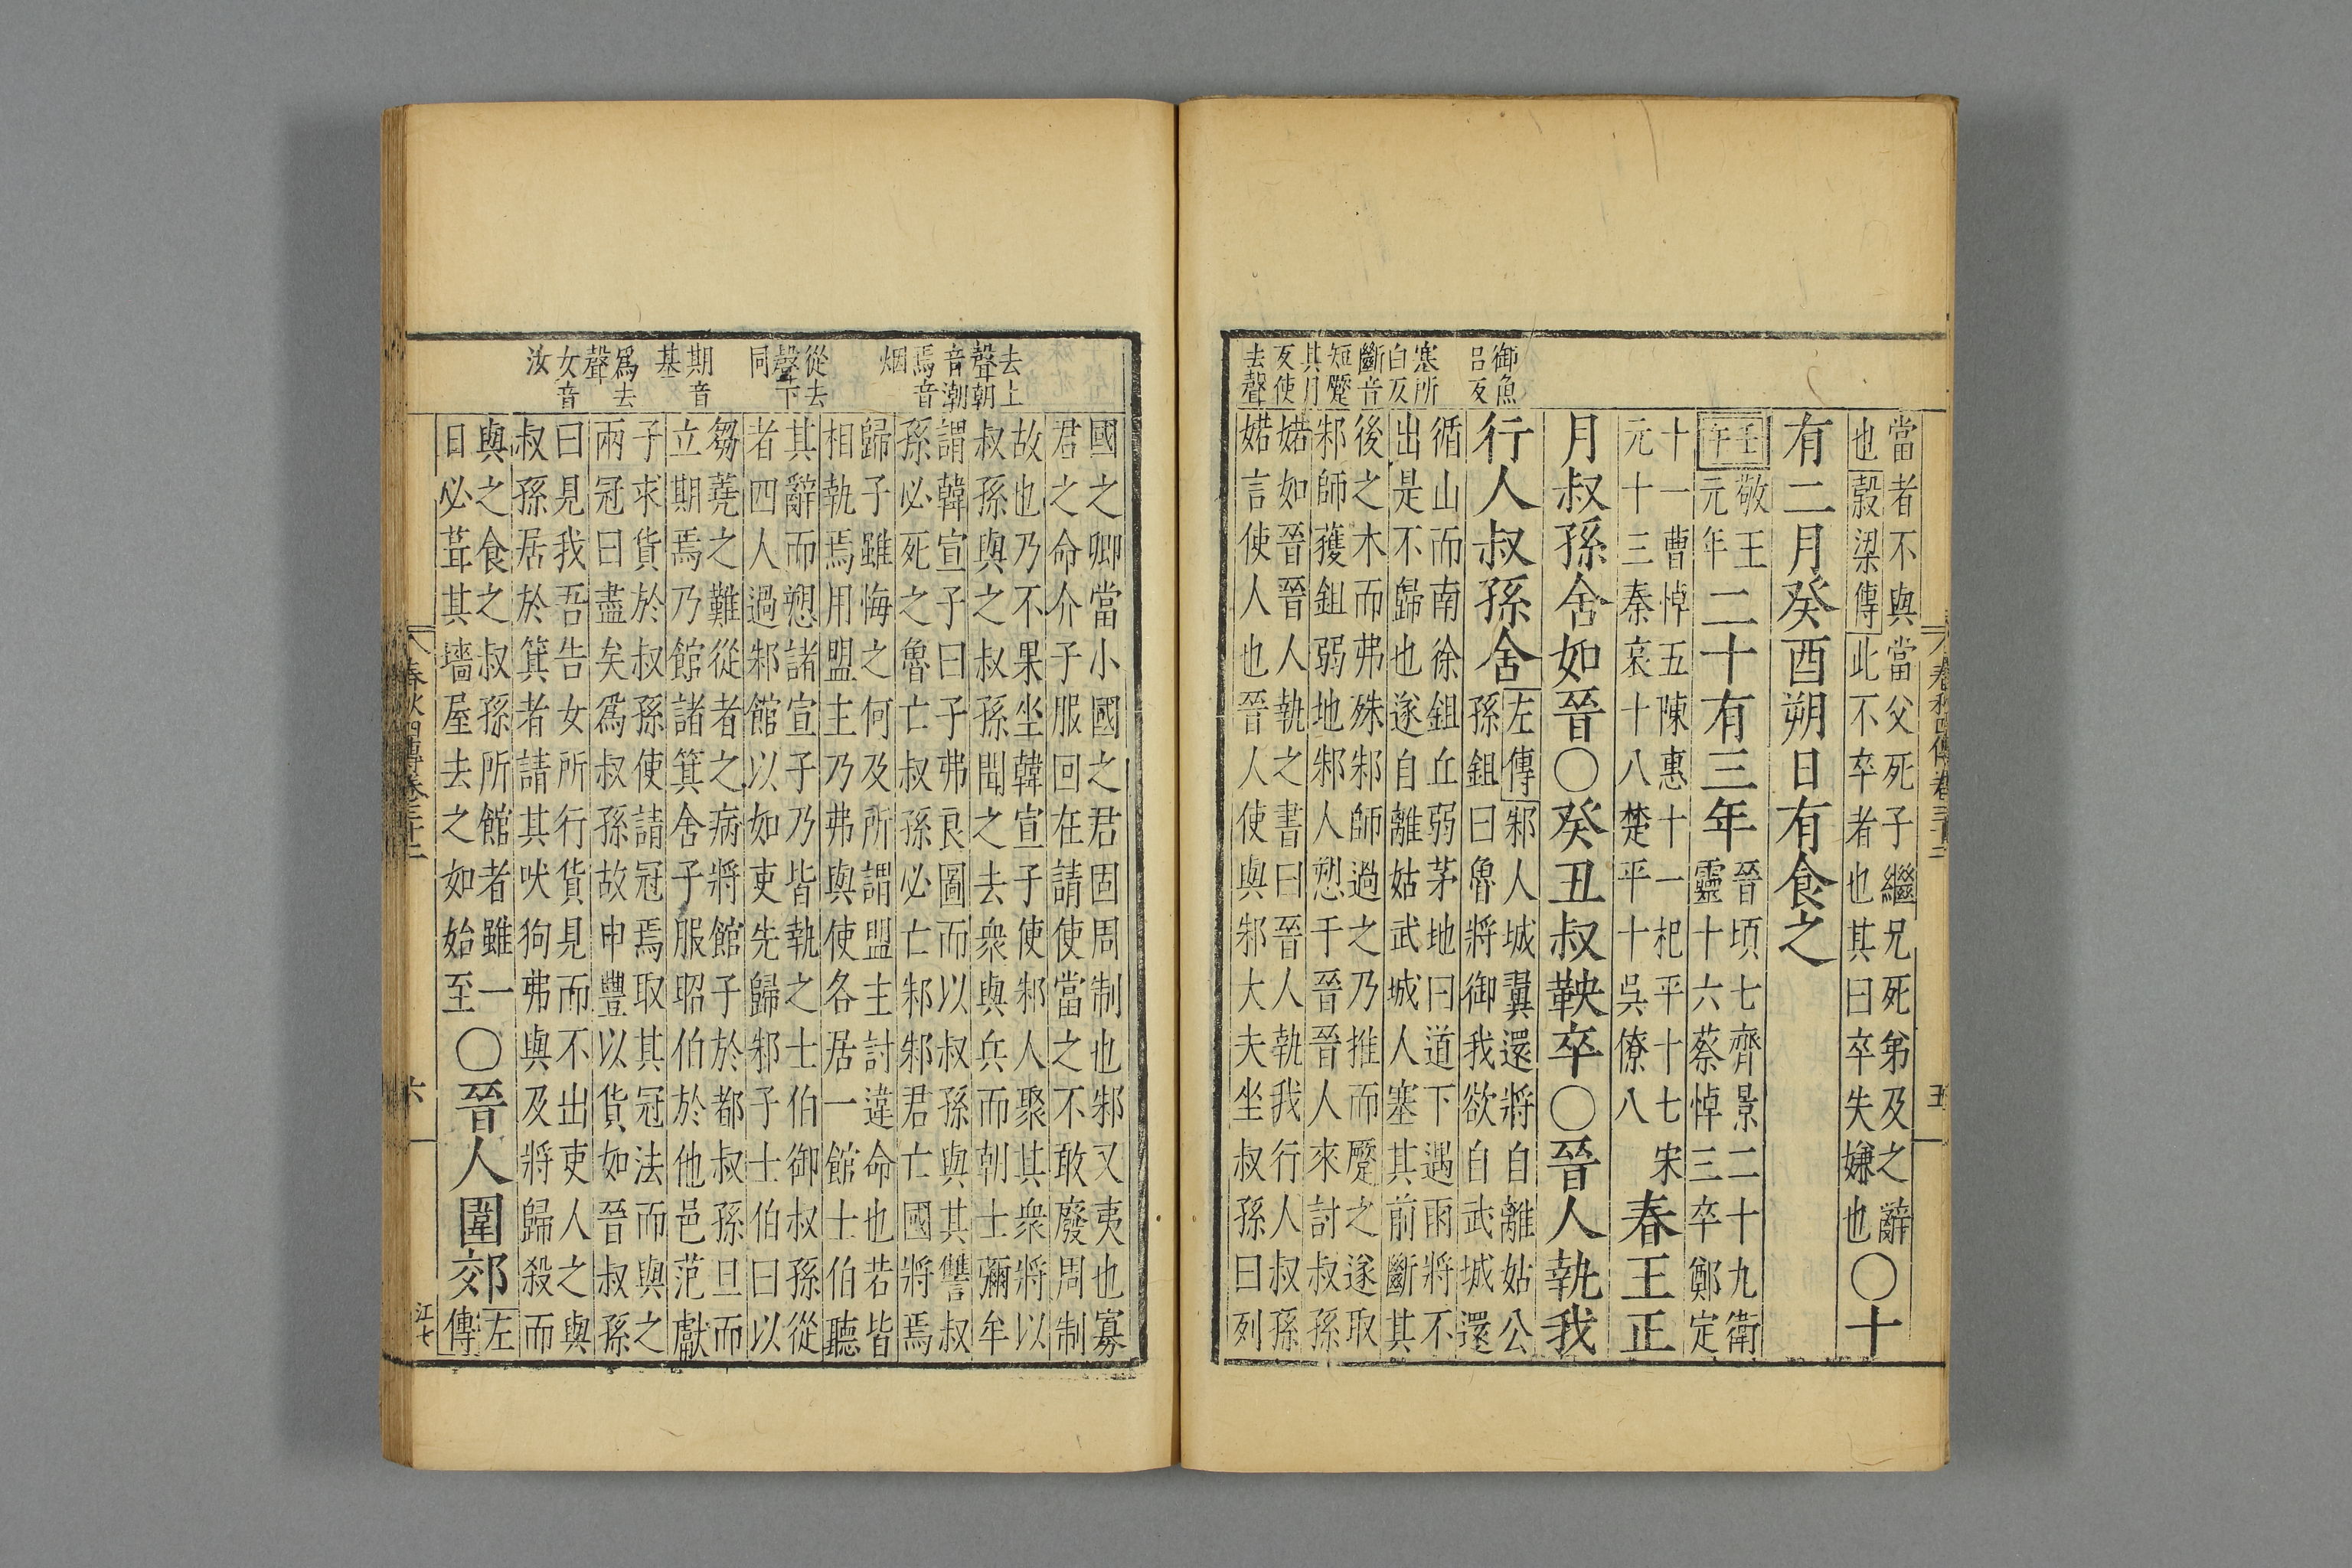 春秋四傳卷三十二
五
當者不與當父死子繼兄死弟及之辭
也穀梁傳此不卒者也其曰卒失嫌也
○十
有二月癸酉朔日有食之
壬午
敬王
元年
二十有三年
晉頃七齊景二十九衛
靈十六蔡悼三卒鄭定
十一曹悼五陳惠十一杞平十七宋
元十三秦哀十八楚平十吳僚八
春王正
月叔孫舍如晉○癸丑叔鞅卒○晉人執我
行人叔孫舍
左傳邾人城翼還將自離姑公
孫鉏曰魯將御我欲自武城還
循山而南徐鉏丘弱茅地曰道下遇雨將不
出是不歸也遂自離姑武城人塞其前斷其
後之木而弗殊邾師過之乃推而蹷之遂取
邾師獲鉏弱地邾人愬于晉晉人來討叔孫
婼如晉晉人執之書曰晉人執我行人叔孫
婼言使人也晉人使與邾大夫坐叔孫曰列
御魚
呂反
塞所
白反
斷音
短蹷
其月
反使
去聲
國之卿當小國之君固周制也邾又夷也寡
君之命介子服回在請使當之不敢廢周制
故也乃不果坐韓宣子使邾人聚其衆將以
叔孫與之叔孫聞之去衆與兵而朝士彌牟
謂韓宣子曰子弗良圖而以叔孫與其讐叔
孫必死之魯亡叔孫必亡邾邾君亡國將焉
歸子雖悔之何及所謂盟主討違命也若皆
相執焉用盟主乃弗與使各居一館士伯聽
其辭而愬諸宣子乃皆執之士伯御叔孫從
者四人過邾館以如吏先歸邾子士伯曰以
芻蕘之難從者之病將館子於都叔孫旦而
立期焉乃館諸箕舍子服昭伯於他邑范獻
子求貨於叔孫使請冠焉取其冠法而與之
兩冠曰盡矣為叔孫故申豐以貨如晉叔孫
曰見我吾告女所行貨見而不出吏人之與
叔孫居於箕者請其吠狗弗與及將歸殺而
與之食之叔孫所館者雖一
日必葺其墻屋去之如始至
○晉人圍郊
左
傳
去上
聲朝
音潮
焉音
烟
從去
聲下
同
期音
基
為去
聲
女音
汝
春秋四傳卷三十二
六